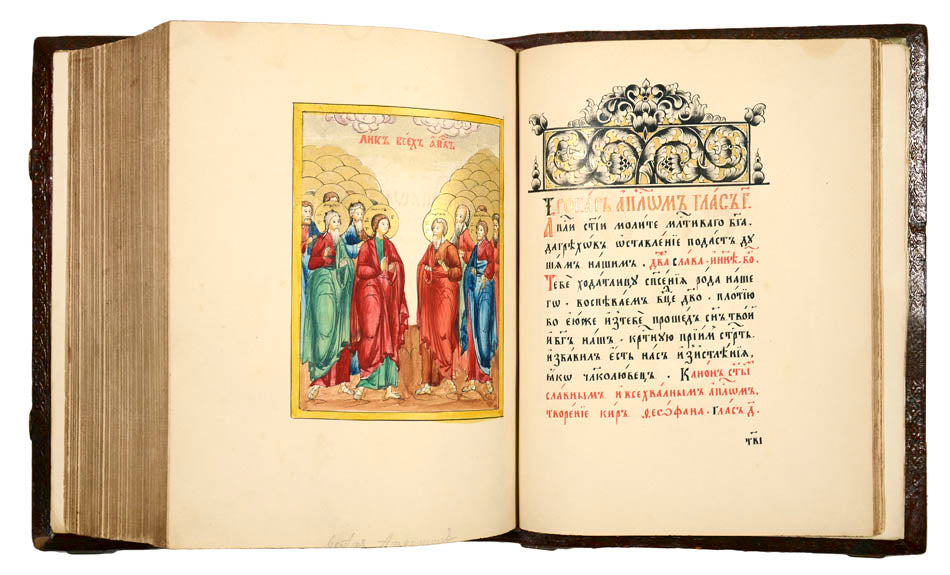 ЛИКЪ ВСЕХЪ А҆ПЛ҃Ъ
ТРОПАРЬ А҆ПЛ҃ОМЪ ГЛАСЪ Г҃
А҆плⷭ҇и ст҃їи молите мл҃тиваго бг҃а
да грѣховъ ѡставленїе подастъ ду
шамъ нашимъ. два слава. и нн҃ѣ. бо
Тебе ходатаицу спⷭ҇енїѧ рода наше
гѡ. воспѣваем бц҃е дв҃о. плотїю
бо ею же из тебе прошедъ сн҃ъ твои
и бг҃ъ нашъ. крⷭ҇тную прїим стрⷭ҇ть
избавилъ есть насъ из истлѣнїѧ,
ꙗкѡ чл҃колюбецъ. Канон ст҃ыⷨ
славнымъ и всехвалнымъ а҆пл҃омъ,
творенїе киръ ѳеофана. гласъ д҃.
тв҃і